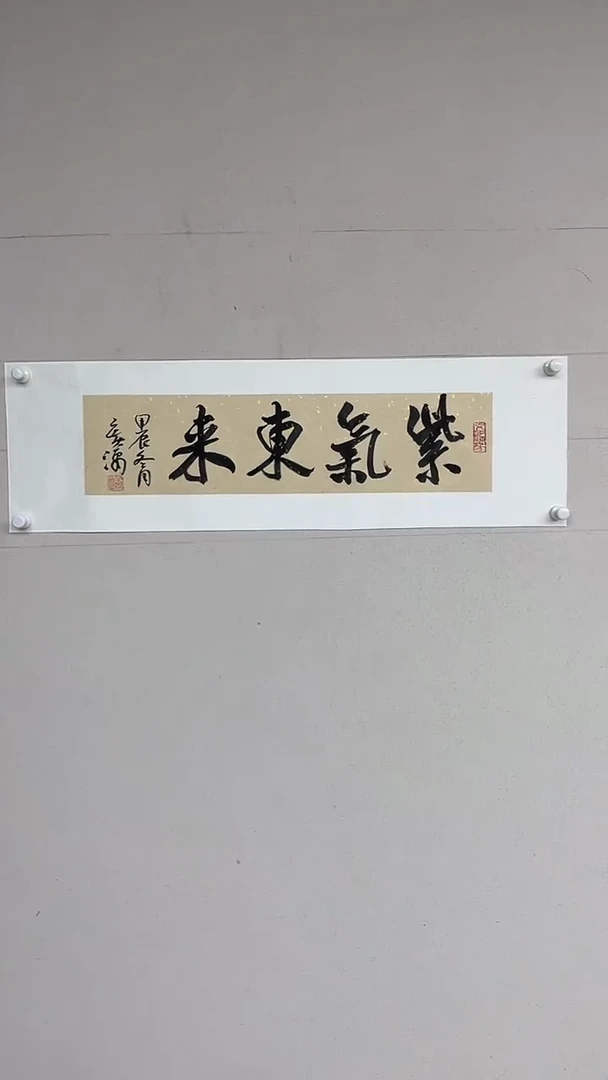 紫氣東来
甲辰冬月